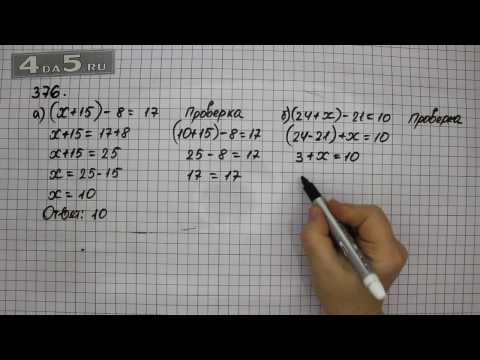 4DA5.RU
376.
а) (x+15) - 8 = 17
x+15 = 17+8
x+15 = 25
x = 25-15
x = 10
Ответ: 10
Проверка
(10+15)-8=17
25 - 8 = 17
17 = 17
б) (24+x) - 21 = 10
(24-21)+x = 10
3+x = 10
Проверка